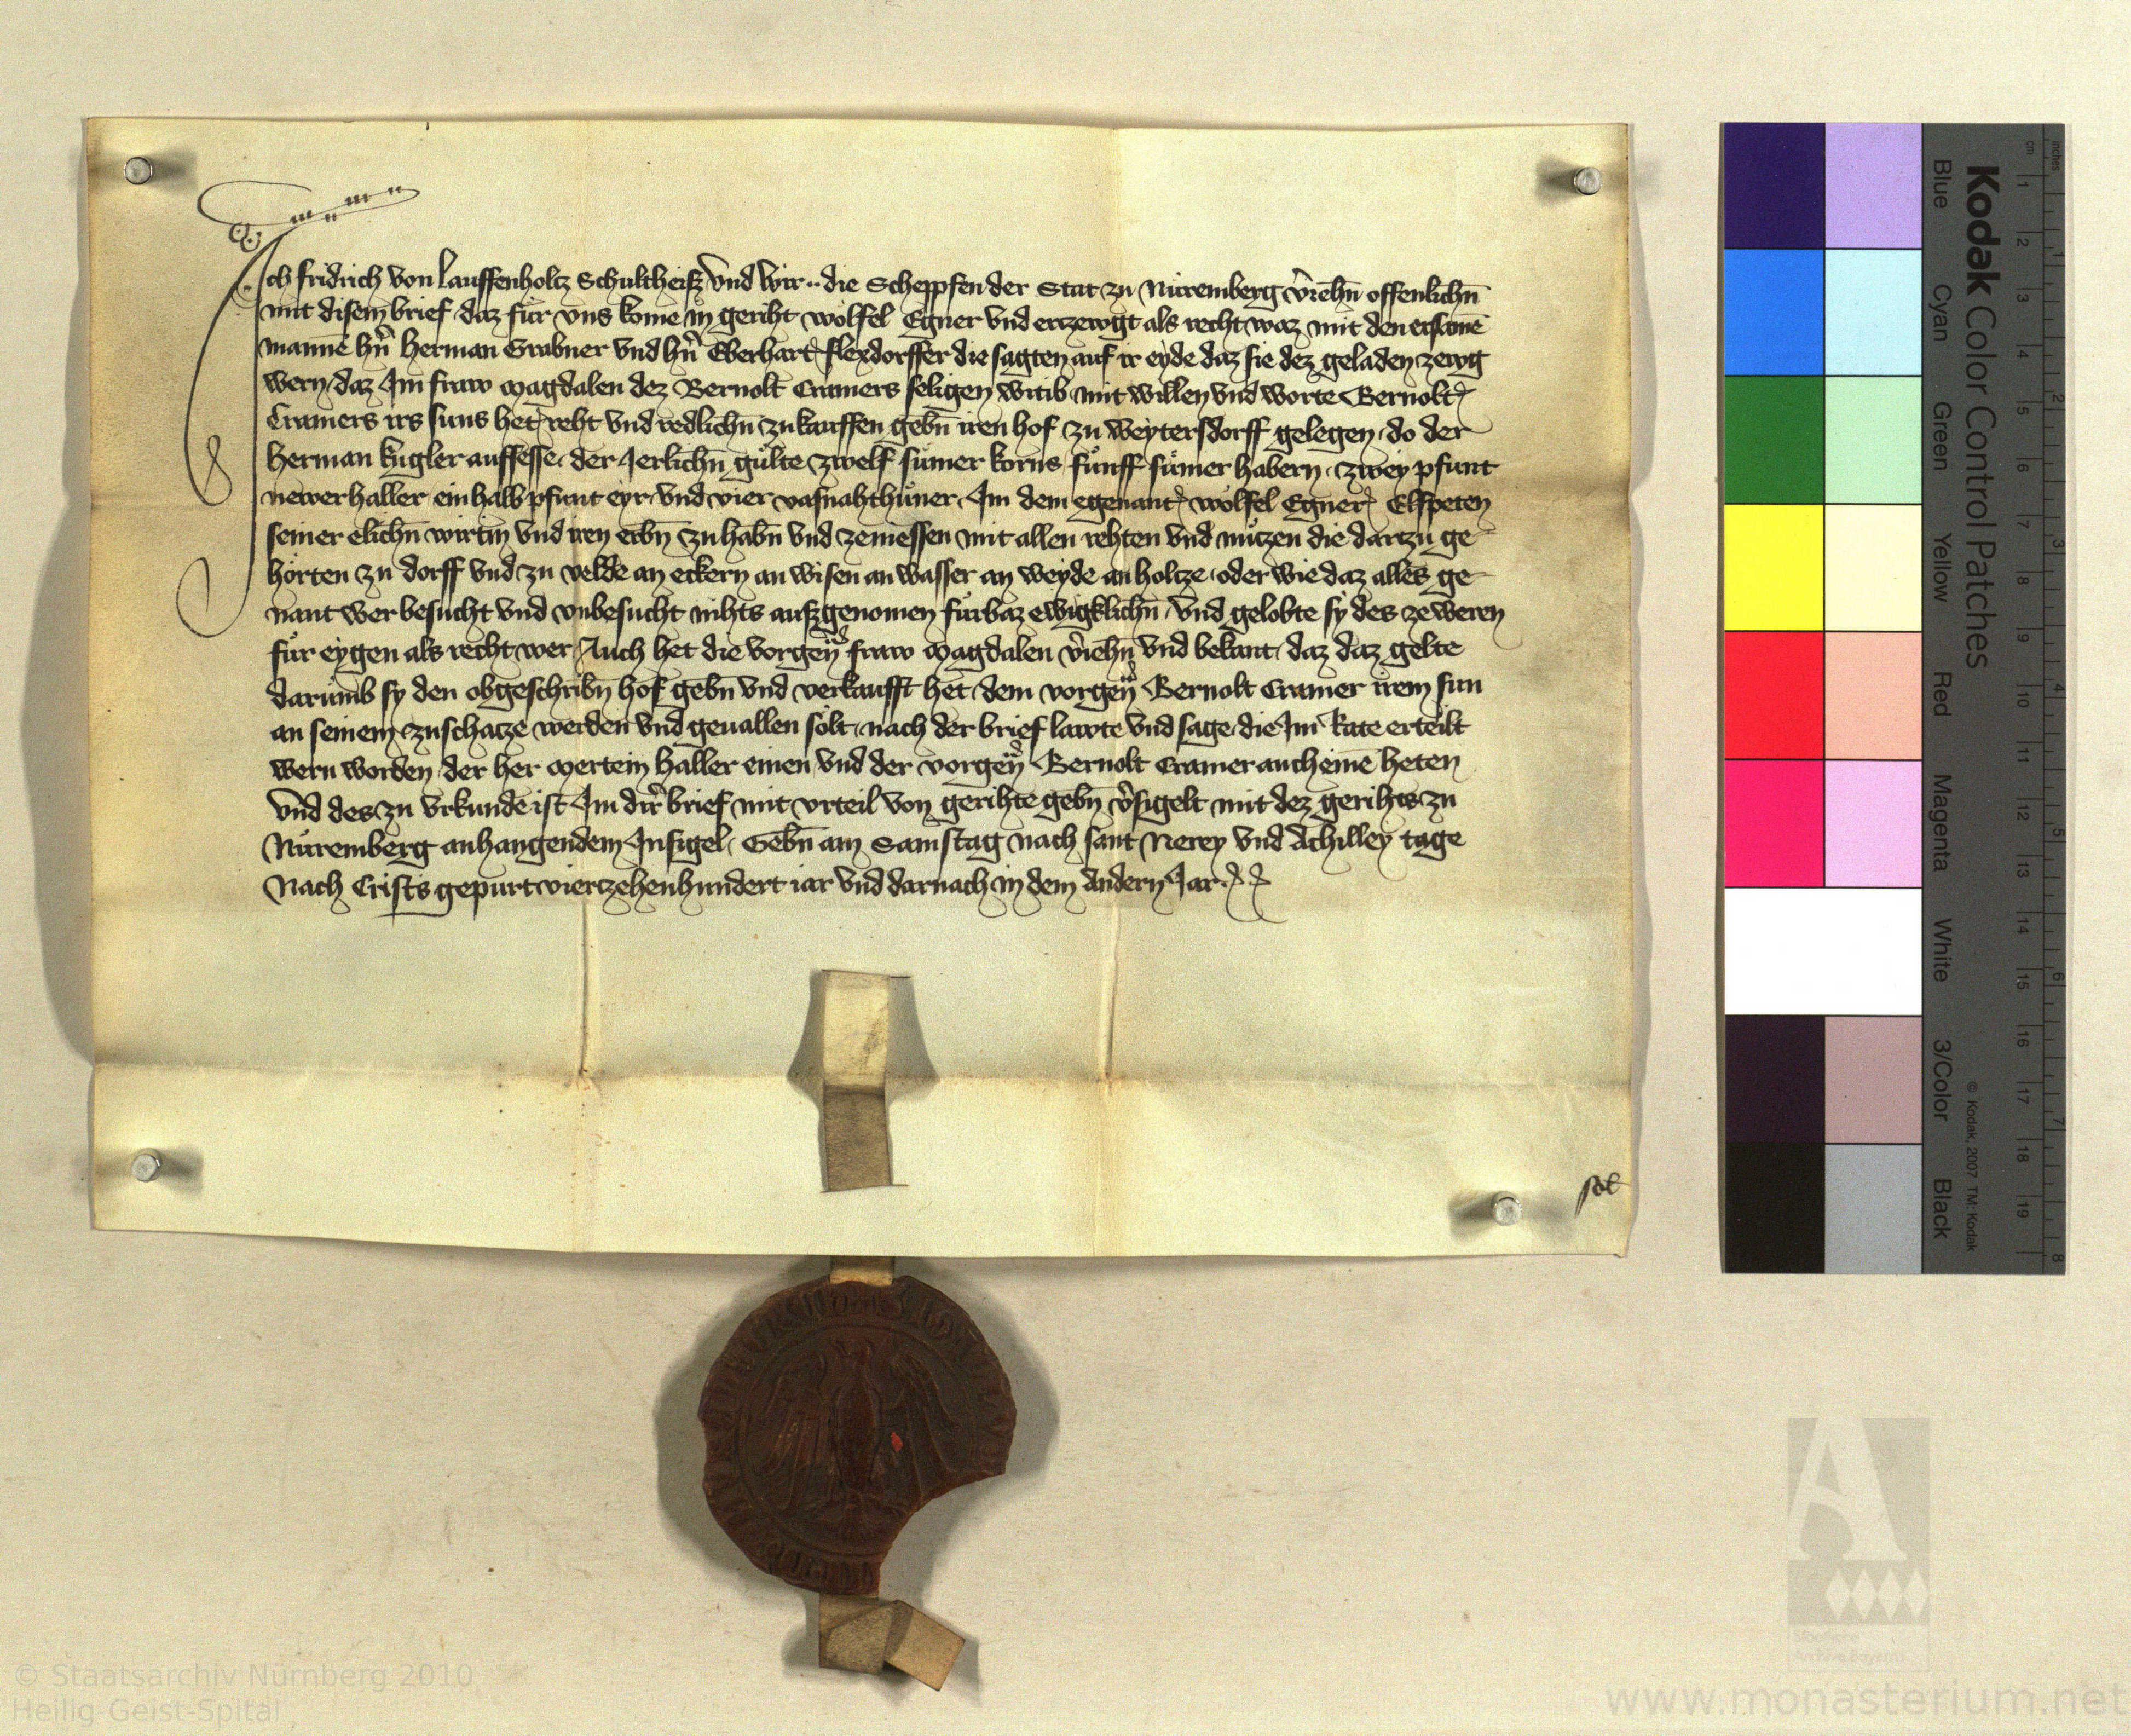 Ich fridrich von Lauffenholtz Schultheiß vnd wir ·· die Scheppfen der Stat zu Nüremberg v̾iehn̄ offenlichn̄
mit disem brief daz für vns kome in geriht wölfel Egner vnd ertzewgt als recht waz mit den ersamē
mannē hn̄ Herman Grabner vnd hn̄ Eberhart flexdorffer die sagten auf ir eyde daz sie dez geladen zewg
wern daz Im fraw Magdalen dez Bernolt Cramers seligen witib mit willen vnd worte Bernolt
Cramers irs suns het reht vnd redlichn̄ zu kauffen gebn̄ iren hof zu weytersdorff gelegen do der
Herman kugler auffesse der Jerlichn̄ gülte zwelf sümer korns fünff sümer habern zwey pfunt
newer haller ein halb pfunt eyr vnd vier vasnahthüner Im dem egenant wölfel Egner Elspeten
seiner elichn̄ wirtin vnd iren erbn̄ zu habn̄ vnd zeniessen mit allen rehten vnd nützen die dartzu ge
hörten zu dorff vnd zu velde an eckern an wisen an wasser an weyde an holtze oder wie daz alles ge
nant wer besucht vnd vnbesucht nihts außgenomen fürbaz ewigklichn̄ vnd gelobte sy des ze weren
für eygen als recht wer Auch het die vorgen̄ fraw Magdalen v̾iehn̄ vnd bekant daz daz gelte
darümb sy den obgeschribn̄ hof gebn̄ vnd verkaufft het dem vorgen̄ Bernolt Cramer irem sun
an seinem zuschatze werden vnd geuallen sölt nach der brief lawte vnd sage die Im Rate erteilt
wern worden der her Mertein Haller einen vnd der vorgen̄ Bernolt Cramer auch einē heten
vnd des zu vrkunde ist Im dir̾ brief mit vrteil von gerihte gebn̄ v̾sigelt mit dez gerihts zu
Nüremberg anhangendem Insigel Gebn̄ am Samstag nach sant Nerey vnd Achilley tage
Nach Crists gepurt viertzehenhundert iar vnd darnach in dem Andern Jar
Kodak Color Control Patches
Blue Cyan Green Yellow Red Magenta White 3/Color Black
© Kodak, 2007 TM: Kodak
cm 1 2 3 4 5 6 7 8 9 10 11 12 13 14 15 16 17 18 19
inches 1 2 3 4 5 6 7 8
© Staatsarchiv Nürnberg 2010
Heilig-Geist-Spital
www.monasterium.net